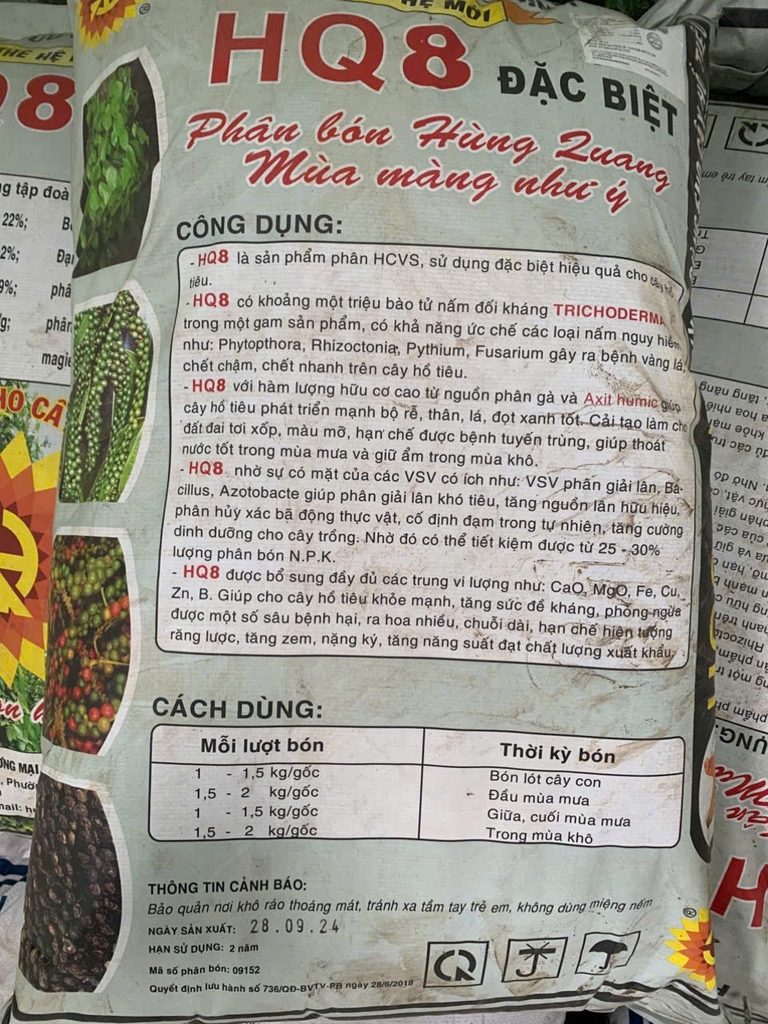 THẾ HỆ MỚI
HQ8 ĐẶC BIỆT
Phân bón Hùng Quang
Mùa màng như ý
CÔNG DỤNG:
- HQ8 là sản phẩm phân HCVS, sử dụng đặc biệt hiệu quả cho cây hồ
tiêu.
- HQ8 có khoảng một triệu bào tử nấm đối kháng TRICHODERMA
trong một gam sản phẩm, có khả năng ức chế các loại nấm nguy hiểm
như: Phytopthora, Rhizoctonia, Pythium, Fusarium gây ra bệnh vàng lá,
chết chậm, chết nhanh trên cây hồ tiêu.
- HQ8 với hàm lượng hữu cơ cao từ nguồn phân gà và Axit humic giúp
cây hồ tiêu phát triển mạnh bộ rễ, thân, lá, đọt xanh tốt. Cải tạo làm cho
đất đai tơi xốp, màu mỡ, hạn chế được bệnh tuyến trùng, giúp thoát
nước tốt trong mùa mưa và giữ ẩm trong mùa khô.
- HQ8 nhờ sự có mặt của các VSV có ích như: VSV phân giải lân, Ba-
cillus, Azotobacte giúp phân giải lân khó tiêu, tăng nguồn lân hữu hiệu,
phân hủy xác bã động thực vật, cố định đạm trong tự nhiên, tăng cường
dinh dưỡng cho cây trồng. Nhờ đó có thể tiết kiệm được từ 25 - 30%
lượng phân bón N.P.K.
- HQ8 được bổ sung đầy đủ các trung vi lượng như: CaO, MgO, Fe, Cu,
Zn, B. Giúp cho cây hồ tiêu khỏe mạnh, tăng sức đề kháng, phòng ngừa
được một số sâu bệnh hại, ra hoa nhiều, chuỗi dài, hạn chế hiện tượng
răng lược, tăng zem, nặng ký, tăng năng suất đạt chất lượng xuất khẩu.
CÁCH DÙNG:
Mỗi lượt bón Thời kỳ bón
1 - 1,5 kg/gốc Bón lót cây con
1,5 - 2 kg/gốc Đầu mùa mưa
1 - 1,5 kg/gốc Giữa, cuối mùa mưa
1,5 - 2 kg/gốc Trong mùa khô
THÔNG TIN CẢNH BÁO:
Bảo quản nơi khô ráo thoáng mát, tránh xa tầm tay trẻ em, không dùng miệng nếm
NGÀY SẢN XUẤT: 28.09.24
HẠN SỬ DỤNG: 2 năm
Mã số phân bón: 09152
Quyết định lưu hành số 736/QĐ-BVTV-PB ngày 28/6/2018